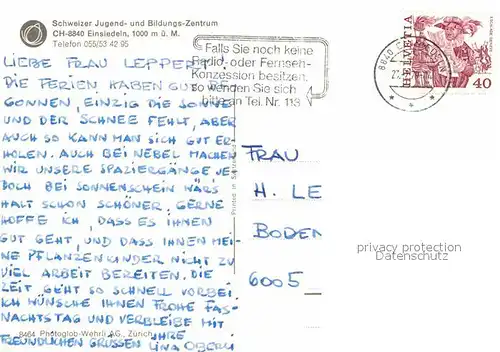 Schweizer Jugend- und Bildungs-Zentrum
CH-8840 Einsiedeln, 1000 m ü. M.
Telefon 055/53 42 95
Falls Sie noch keine
Radio- oder Fernseh-
Konzession besitzen,
so wenden Sie sich
bitte an Tel. Nr. 113
8840
HELVETIA
40
LIEBE FRAU LEPPERT!
DIE FERIEN HABEN GUT BE-
GONNEN, EINZIG DIE SONNE
UND DER SCHNEE FEHLT, ABER
AUCH SO KANN MAN SICH GUT ER-
HOLEN. AUCH BEI NEBEL MACHEN
WIR UNSERE SPAZIERGÄNGE JE
DOCH BEI SONNENSCHEIN WÄR'S
HALT SCHON SCHÖNER. GERNE
HOFFE ICH, DASS ES IHNEN
GUT GEHT, UND DASS IHNEN MEI-
NE PFLANZENKINDER NICHT ZU
VIEL ARBEIT BEREITEN. DIE
ZEIT GEHT SO SCHNELL VORBEI
ICH WÜNSCHE IHNEN FROHE FAS-
NACHTSTAG UND VERBLEIBE MIT
FREUNDLICHEN GRÜSSEN IHRE
LINA
8464 Photoglob-Wehrli AG., Zürich
Printed in Switzerland
FRAU
H. LE
BODEN
6005
privacy protection
Datenschutz